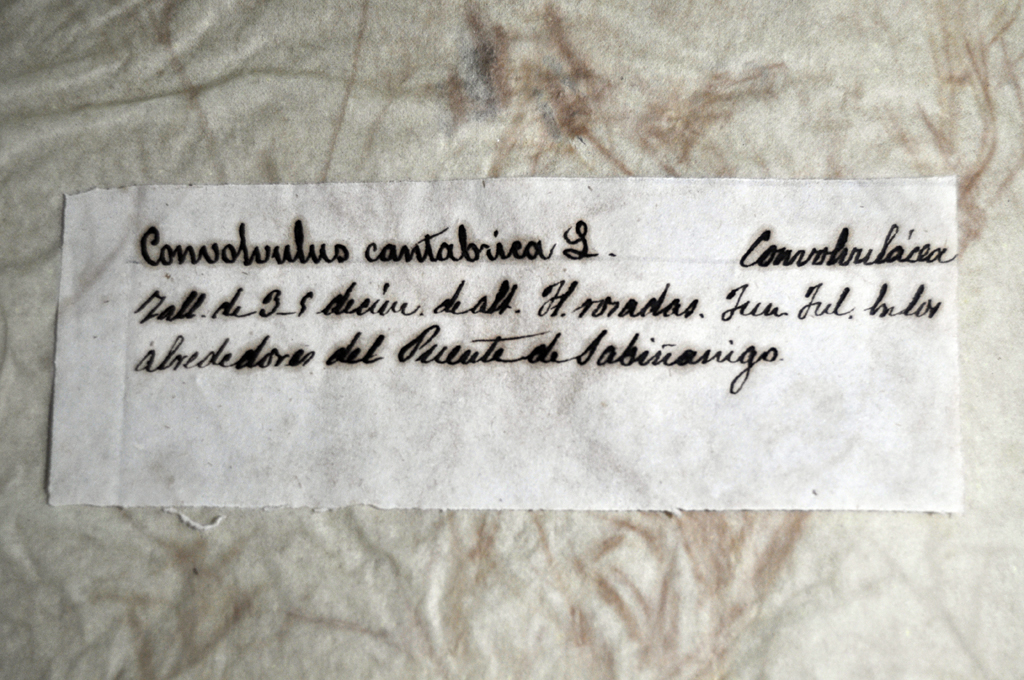 Convolvulus cantabrica L. Convolvulácea
Tall. de 3-5 decím. de alt. Fl. rosadas. Jun. Jul. En los
alrededores del Puente de Sabiñanigo